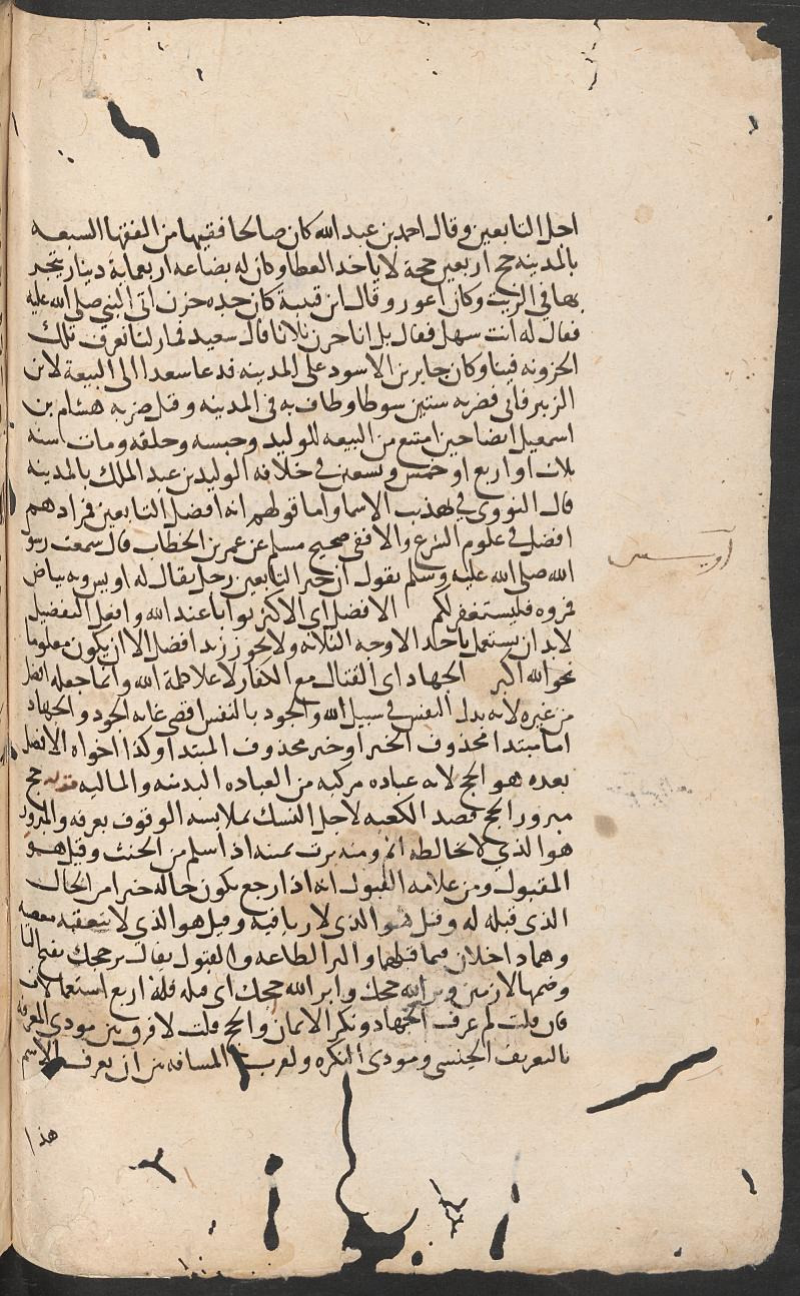 اجل التابعين وقال احمد بن عبد الله كان صالحا فقيها من الفقها السبعه
بالمدينه حج اربعين حجة لا ياخد العطا وكان له بضاعه اربعماية دينار يتجر
بها في الزيت وكان اعور وقال ابن قتيبة كان جده حزن اتى النبي صلى الله عليه
فقال له انت سهل فقال بل انا حزن ثلاثا قال سعيد فما زلنا نعرف تلك
الحزونه فينا وكان جابر بن الاسود على المدينه فدعا سعيدا الى البيعة لابن
الزبير فابى فضربه ستين سوطا وطاف به في المدينه وقيل ضربه هشام بن
اسمعيل ايضا حين امتنع من البيعه للوليد وحبسه وحلقه ومات سنه
ثلاث او اربع او خمس وتسعين في خلافه الوليد بن عبد الملك بالمدينه
قال النووي في تهذيب الاسما واما قولهم انه افضل التابعين فمرادهم
افضل في علوم الشرع والا ففي صحيح مسلم عن عمر بن الخطاب قال سمعت رسو
الله صلى الله عليه وسلم يقول ان خير التابعين رجل يقال له اويس وبه بياض
فمروه فليستغفر لكم الافضل اى الاكثر ثوابا عند الله وافعل التفضيل
لابد ان يستعمل باحد الاوجه الثلاثه ولا يجوز زيد افضل الا ان يكون معلوما
نحو الله اكبر الجهاد اى القتال مع الكفار لاعلا كلمة الله وانما جعله افضل
من غيره لانه بدل النفس في سبيل الله والجود بالنفس اقصى غايه الجود والجهاد
اما مبتدا محذوف الخبر او خبر محذوف المبتدا وكذا اخواه الافضل
بعده هو الحج لانه عباده مركبه من العباده البدنيه والماليه قوله حج
مبرور الحج قصد الكعبه لاجل النسك بملابسه الوقوف بعرفه والمبرور
هو الذي لا يخالطه اثم ومنه برت يمينه اذا سلم من الحنث وقيل هو
المقبول ومن علامه القبول انه اذا رجع يكون حاله خيرا من الحال
الذى قبله له وقيل هو الذى لا ريا فيه وقيل هو الذى لا يتعقبه معصيه
وهما داخلان فيما قبلهما والبر الطاعه والقبول يقال بر حجك بفتح البا
وضمها لازمين وبر الله حجك وابر الله حجك اى قبله فله اربع استعمالات
فان قلت لم عرف الجهاد ونكر الايمان والحج قلت لا فرق بين مودى المعرفه
بالتعريف الجنسى ومودى النكره ولقرب المسافه بين ان يعرف الاسم
هذا
اويس